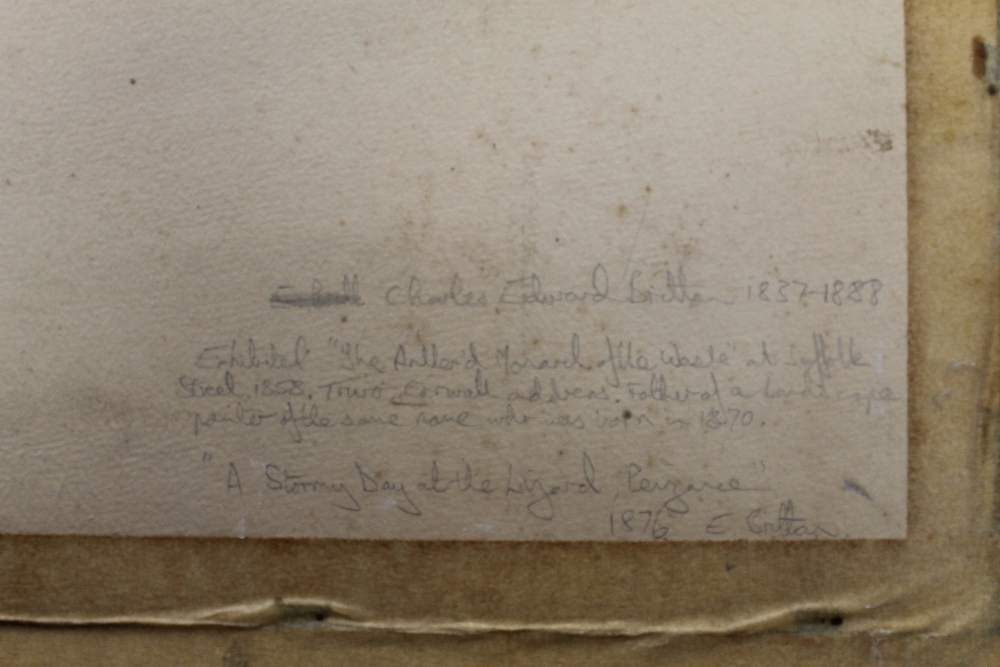 Charles Edward Brittan 1837-1888
Exhibited "The Antler'd Monarch of the Waste" at Suffolk
Street, 1858. Truro, Cornwall address. Father of a landscape
painter of the same name who was born in 1870.
"A Stormy Day at the Lizard, Penzance"
1876 E Brittan.